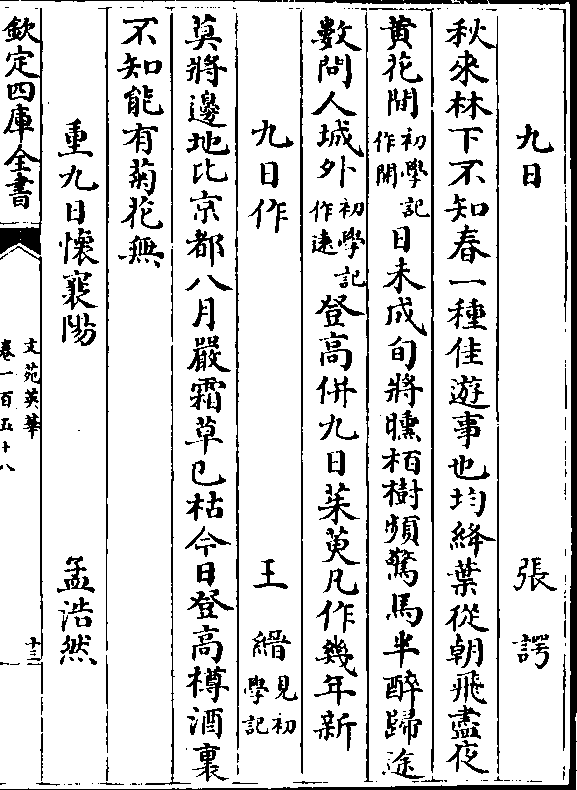 九日 張諤
秋來林下不知春一種佳遊事也均絳葉從朝飛盡夜
黄花間初學記作開日未成旬將曛栢樹頻驚馬半醉歸途
數問人城外初學記作遠登高併九日茱萸凡作幾年新
九日作 王縉見初學記
莫將邊地比京都八月嚴霜草已枯今日登高樽酒裏
不知能有菊花無
重九日懷襄陽 孟浩然
欽定四庫全書 文苑英華 卷一百五十八 十三